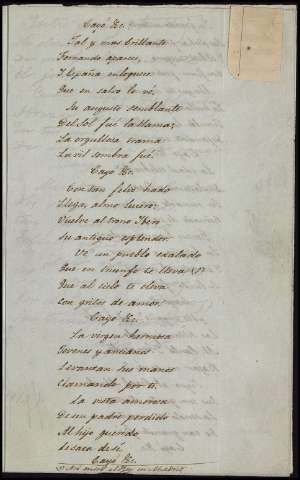 Cayó &c.
Tal y mas brillante
Fernando aparece,
I España enloquece
Que en salvo le vé.
Su augusto semblante
Del Sol fué la llama;
La orgullosa trama
La vil sombra fué.
Cayó &c.
Con tan feliz hado
Llega, almo lucero;
Vuelve al trono Ibero
Su antiguo esplendor.
Ve un pueblo exalado
Que en triunfo te lleva
Que al cielo te eleva
con gritos de amor.
Cayó &c.
La virgen hermosa
Jovenes y ancianos
Levantan sus manos
Clamando por ti.
La vista amorosa
De un padre perdido
Al hijo querido
le saca de sí.
Cayó &c.
Así entró el Rey en Madrid